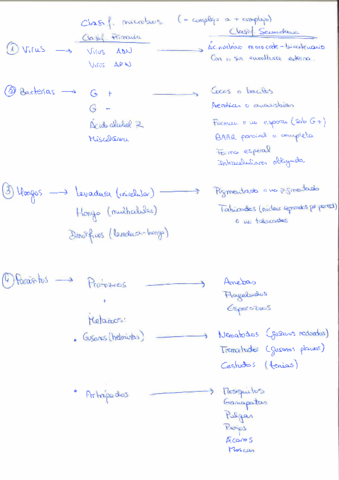 Clasif. microbios (- complejo a + complejo)
Clasif Primaria
Clasif Secundaria
① Virus → Virus ADN → Ác nucleico monocate-bicatenario
Virus ARN
Con o sin envoltura externa.
② Bacterias → G + → Cocos o bacilos
G -
Aerobias o anaerobias
Ácido alcohol R
Forman o no esporas (solo G+)
Miscelánea
BAAR parcial o completo
Forma espiral
Intracelulares obligada
③ Hongos → Levadura (unicelular) → Pigmentado o no pigmentado
Hongo (multicelular)
Tabicados (núcleos separados por pared)
o no tabicados
Bimórficos (levadura-hongo)
④ Parásitos → Protozoos → Amebas
Flagelados
+
Esporozoos
Metazoos:
• Gusanos (helmintos) → Nematodos (gusanos redondos)
Trematodos (gusanos planos)
Cestodos (tenias)
• Artrópodos → Mosquitos
Garrapatas
Pulgas
Piojos
Ácaros
Moscas